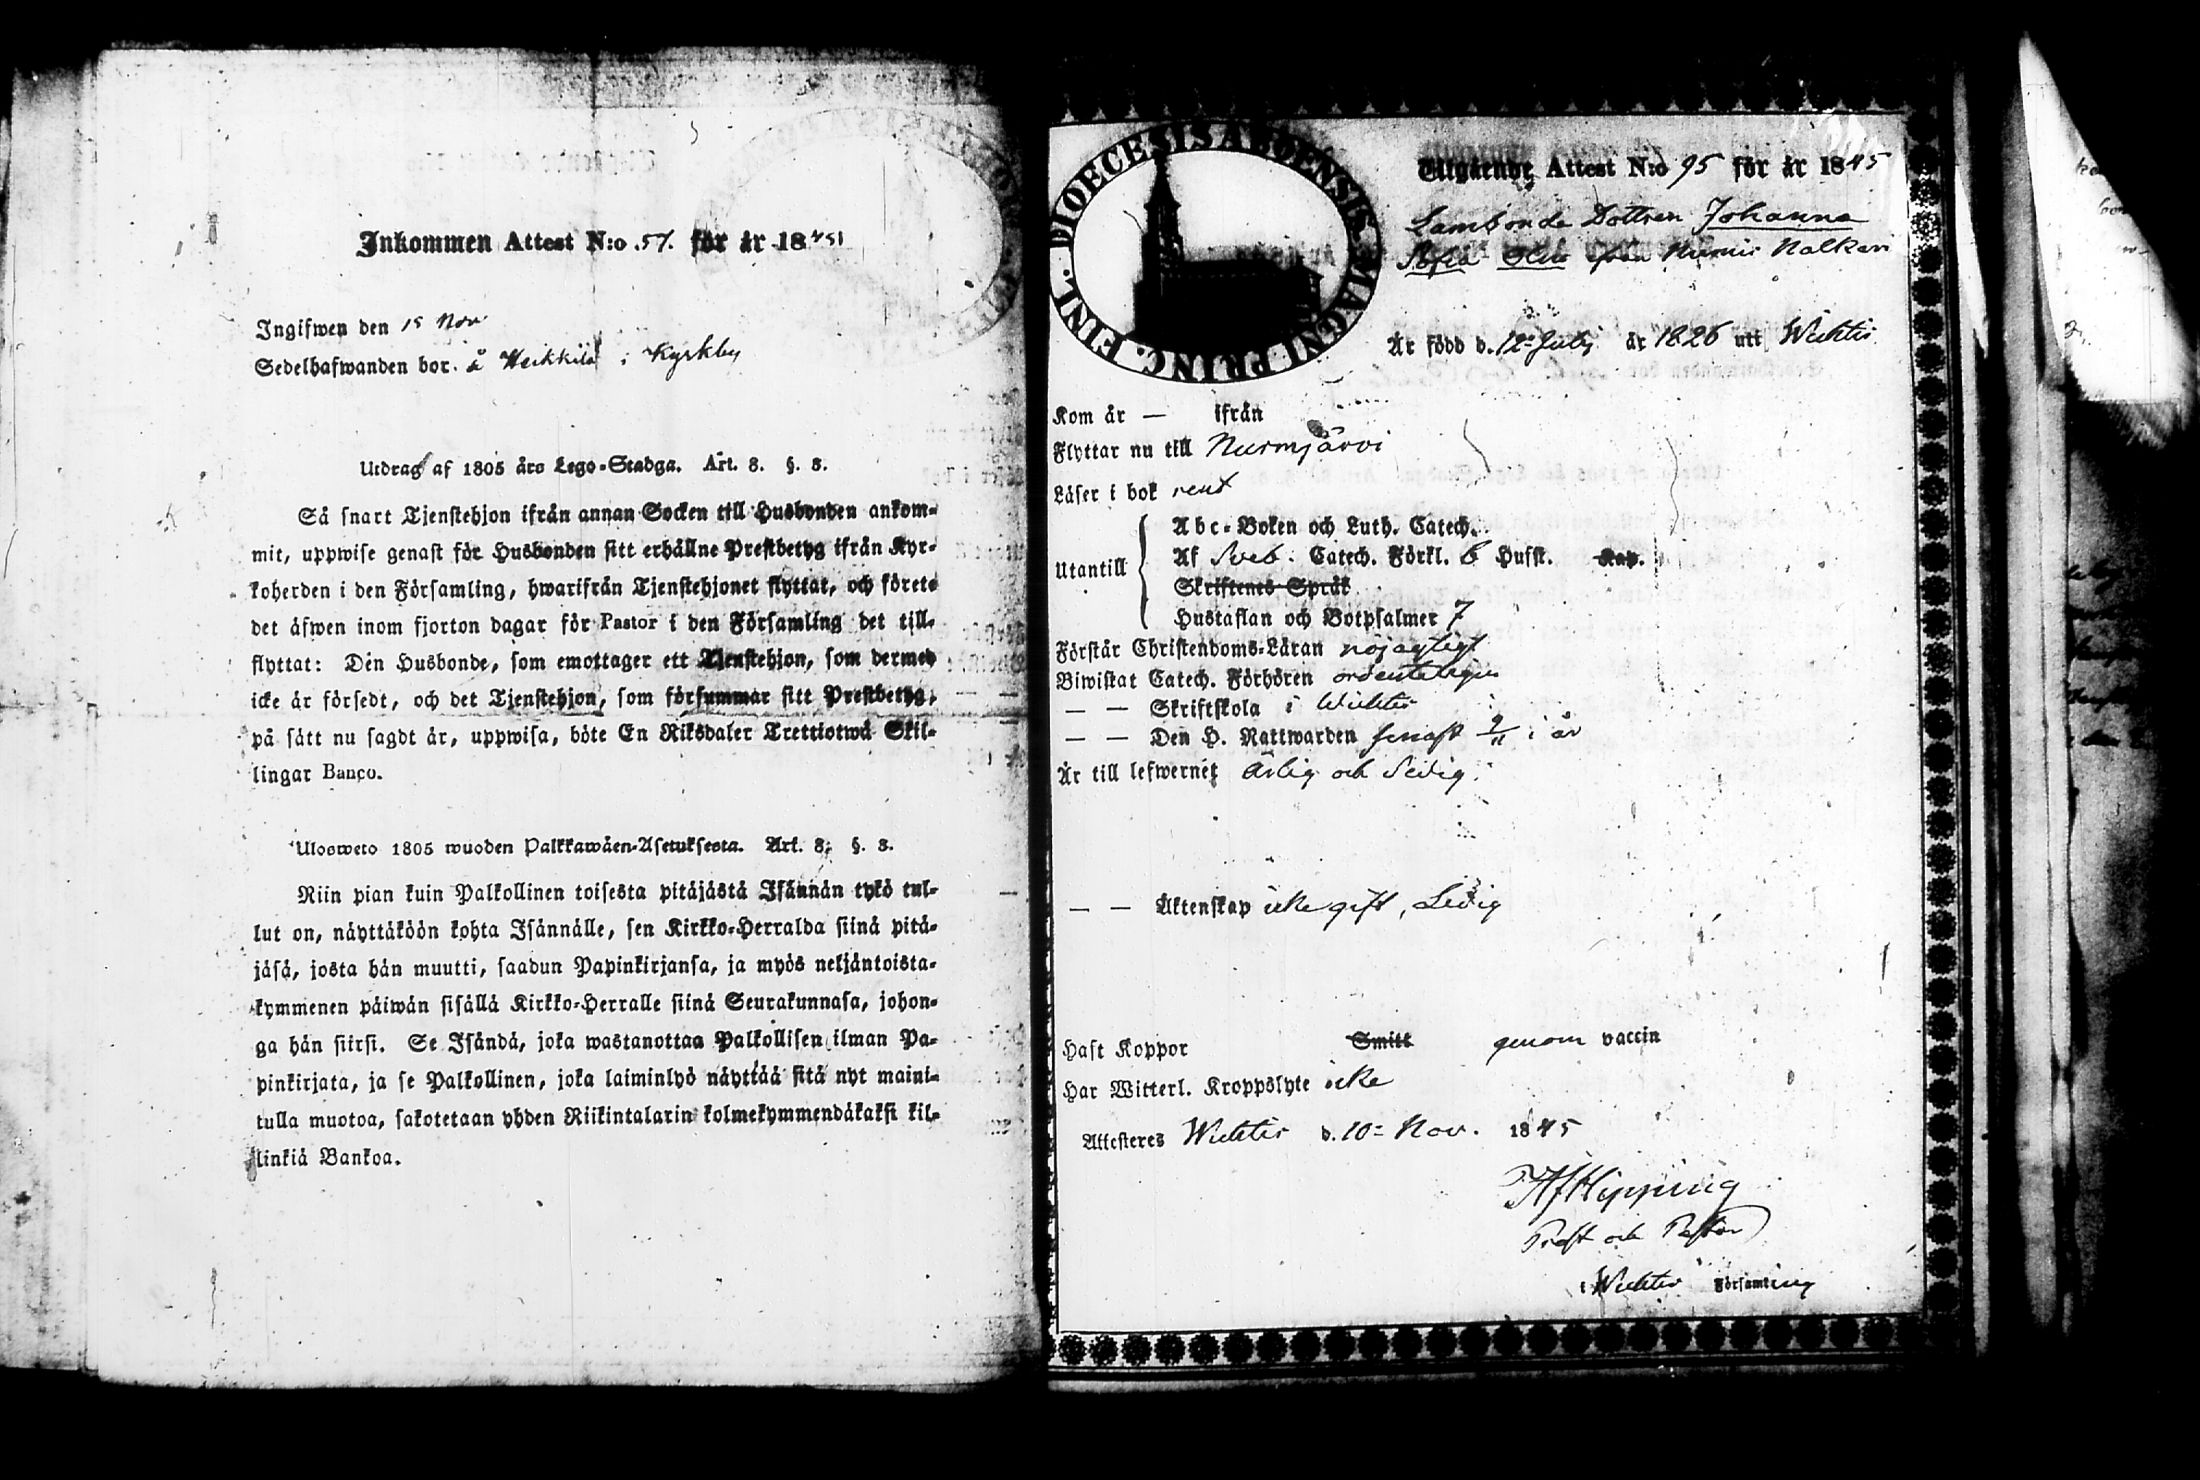 Inkommen Attest N:o 57. för år 1845
Ingifwen den 15 Nov.
Sedelhafwanden bor. å Heikkilä i Kyrkby
Utdrag af 1805 års Lego-Stadga. Art. 8. §. 8.
Så snart Tjenstehjon ifrån annan Socken till Husbonden ankom-
mit, uppwise genast för Husbonden sitt erhållne Prestbetyg ifrån Kyr-
koherden i den Församling, hwarifrån Tjenstehjonet flyttat, och förete
det äfwen inom fjorton dagar för Pastor i den Församling det till-
flyttat: Den Husbonde, som emottager ett Tjenstehjon, som dermed
icke är försedt, och det Tjenstehjon, som försummar sitt Prestbetyg,
på sätt nu sagdt är, uppwisa, böte En Riksdaler Trettiotwå Skil-
lingar Banco.
Ulosweto 1805 wuoden Palkkawäen-Asetuksesta. Art. 8. §. 8.
Niin pian kuin Palkollinen toisesta pitäjästä Isännän tykö tul-
lut on, näyttäköön kohta Isännälle, sen Kirkko-Herralda siinä pitä-
jäsä, josta hän muutti, saadun Papinkirjansa, ja myös neljäntoista-
kymmenen päiwän sisällä Kirkko-Herralle siinä Seurakunnasa, johon-
ga hän siirsi. Se Isändä, joka wastanottaa Palkollisen ilman Pa-
pinkirjata, ja se Palkollinen, joka laiminlyö näyttää sitä nyt maini-
tulla muotoa, sakotetaan yhden Riikintalarin kolmekymmendäkaksi kil-
linkiä Bankoa.
DIOECESIS ABOENSIS. MAGNI PRINC. FINL.
Utgående Attest N:o 95 för år 1845
Lambonde Dottren Johanna
Sofia från Nummis Nalkari
Är född d. 12 July år 1826 uti Wichtis
Kom år — ifrån
Flyttar nu till Nurmjärvi
Läser i bok rent
Utantill
Abc-Boken och Luth. Catech.
Af Sveb. Catech. Förkl. 6 Hufst. Kap.
Skriftenes Språk
Hustaflan och Botpsalmer 7
Förstår Christendoms-Läran nöjagtigt
Biwistat Catech. Förhören ordenteligen
— — Skriftskola i Wichtis
— — Den H. Nattwarden senast 9/11 i år
Är till lefwernet ärlig och sedig.
— — Äktenskap icke gift, Ledig
Haft Koppor Smitt genom vaccin
Har Witterl. Kroppslyte icke
Attesteres Wichtis d. 10 Nov. 1845
Hipping
Prost och Pastor
i Wichtis Församling